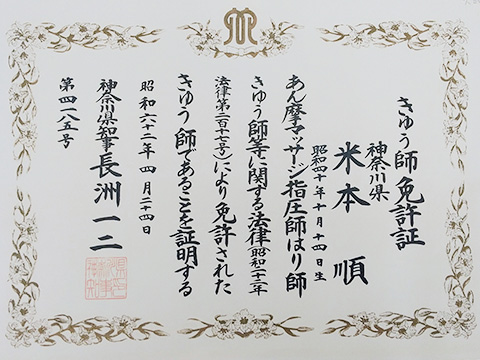 きゆう師免許証
神奈川県
米本順
昭和四十年十月十四日生
あん摩マツサージ指圧師はり師
きゆう師等に関する法律(昭和二十二年
法律第二百十七号)により免許された
きゆう師であることを証明する
昭和六十二年四月二十四日
神奈川県知事長洲一二
第四一八五号